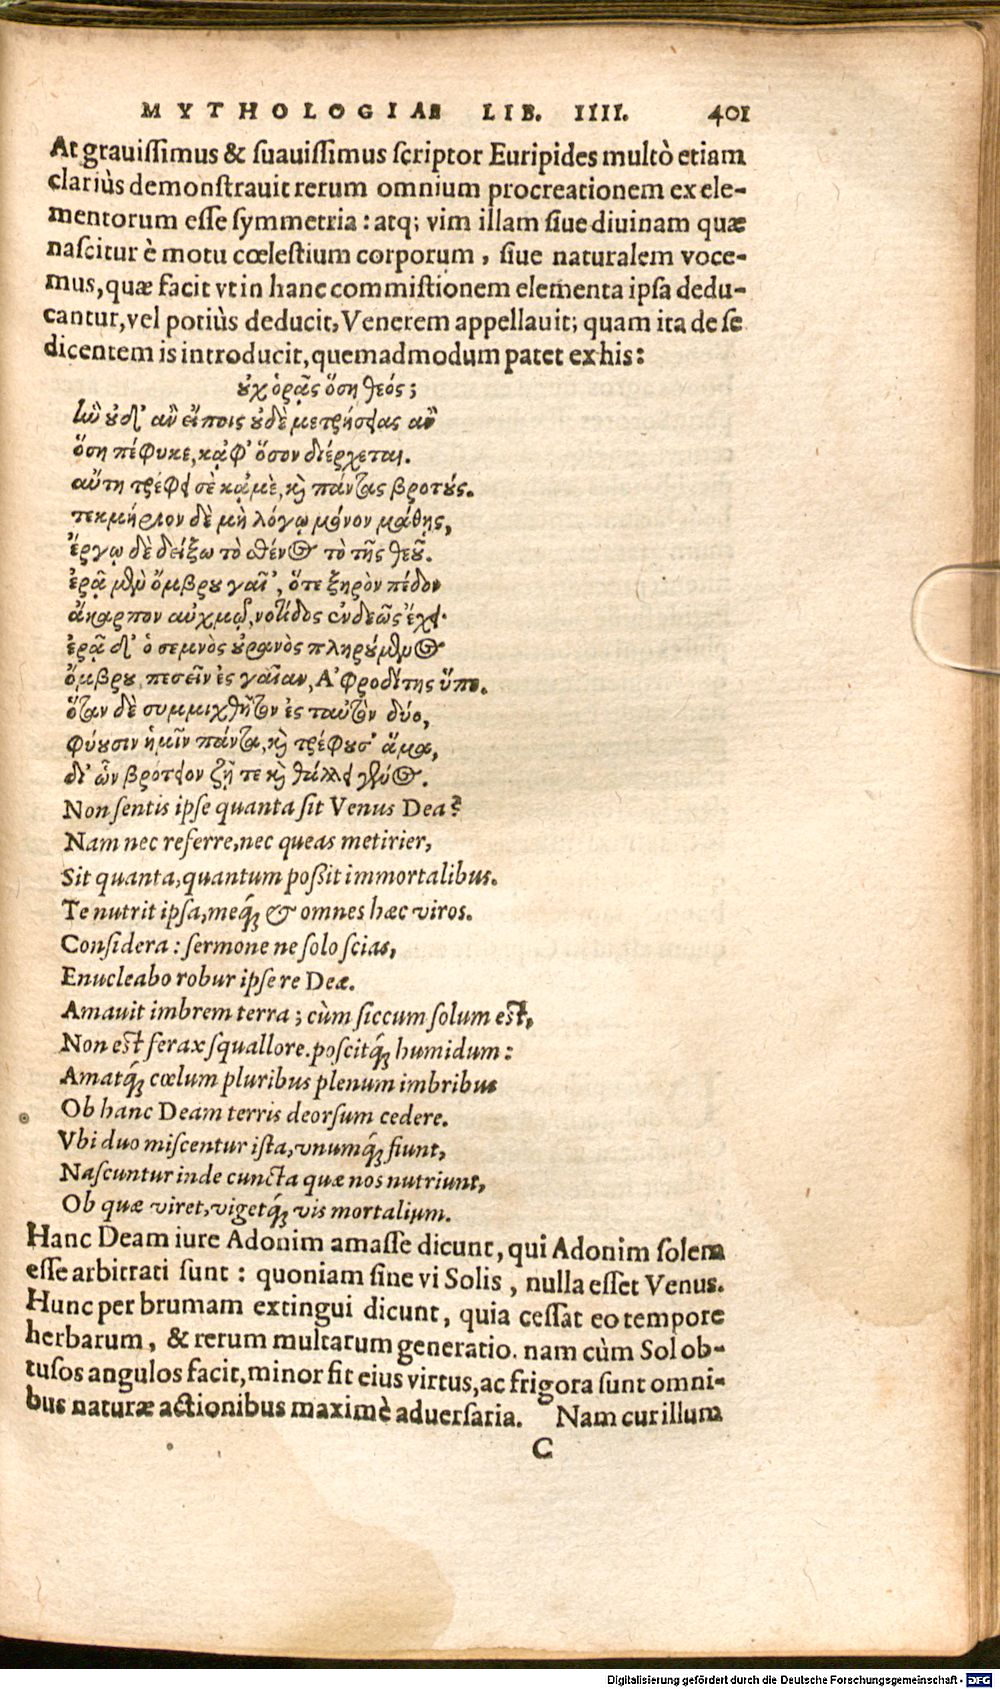 MYTHOLOGIAE LIB. IIII. 401
At grauissimus & suauissimus scriptor Euripides multò etiam
clariùs demonstrauit rerum omnium procreationem ex ele-
mentorum esse symmetria: atq; vim illam siue diuinam quæ
nascitur è motu cœlestium corporum, siue naturalem voce-
mus, quæ facit vt in hanc commistionem elementa ipsa dedu-
cantur, vel potiùs deducit, Venerem appellauit; quam ita de se
dicentem is introducit, quemadmodum patet ex his:
οὐχ ὁρᾷς ὅση θεός;
ἣν οὐδ' ἂν εἴποις οὐδὲ μετρήσειας ἂν
ὅση πέφυκε, κᾀφ' ὅσον διέρχεται.
αὕτη τρέφει σὲ κᾀμὲ, καὶ πάντας βροτούς.
τεκμήριον δὲ μὴ λόγῳ μόνον μάθῃς,
ἔργῳ δὲ δείξω τὸ σθένος τὸ τῆς θεοῦ.
ἐρᾷ μὲν ὄμβρου γαῖ', ὅτε ξηρὸν πέδον
ἄκαρπον αὐχμῷ, νοτίδος ἐνδεῶς ἔχει.
ἐρᾷ δ' ὁ σεμνὸς οὐρανὸς πληρούμενος
ὄμβρου, πεσεῖν ἐς γαῖαν, Ἀφροδίτης ὕπο.
ὅταν δὲ συμμιχθῆτον ἐς ταὐτὸν δύο,
φύουσιν ἡμῖν πάντα, καὶ τρέφουσ' ἅμα,
δι' ὧν βρότειον ζῇ τε καὶ θάλλει γένος.
Non sentis ipse quanta sit Venus Dea?
Nam nec referre, nec queas metirier,
Sit quanta, quantum poßit immortalibus.
Te nutrit ipsa, meq́; & omnes hæc viros.
Considera: sermone ne solo scias,
Enucleabo robur ipse re Deæ.
Amauit imbrem terra; cùm siccum solum est,
Non est ferax squallore. poscitq́; humidum:
Amatq́; cœlum pluribus plenum imbribus
Ob hanc Deam terris deorsum cedere.
Vbi duo miscentur ista, vnumq́; fiunt,
Nascuntur inde cuncta quæ nos nutriunt,
Ob quæ viret, vigetq́; vis mortalium.
Hanc Deam iure Adonim amasse dicunt, qui Adonim solem
esse arbitrati sunt: quoniam sine vi Solis, nulla esset Venus.
Hunc per brumam extingui dicunt, quia cessat eo tempore
herbarum, & rerum multarum generatio. nam cùm Sol ob-
tusos angulos facit, minor fit eius virtus, ac frigora sunt omni-
bus naturæ actionibus maximè aduersaria. Nam cur illum
C
Digitalisierung gefördert durch die Deutsche Forschungsgemeinschaft - DFG